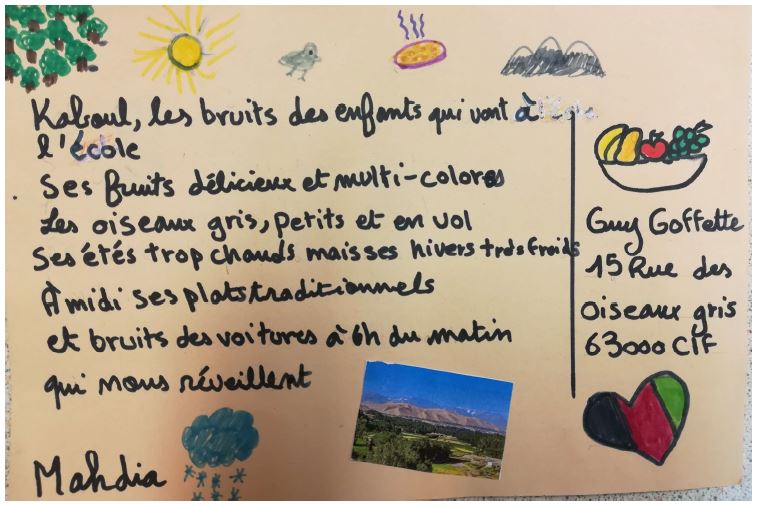 Kaboul, les bruits des enfants qui vont à
l'école
Ses fruits délicieux et multi-colores
Les oiseaux gris, petits et en vol
Ses étés trop chauds mais ses hivers très froids
À midi ses plats traditionnels
et bruits des voitures à 6h du matin
qui nous réveillent
Mahdia
Guy Goffette
15 Rue des
oiseaux gris
63000 CLF